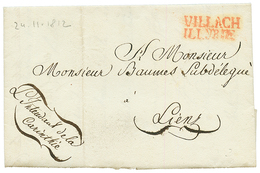 24-11-1812
VILLACH
ILLYRIE
A Monsieur
Monsieur Baumes Subdélégué
à
Lienz
L'Intendant de la
Carinthie